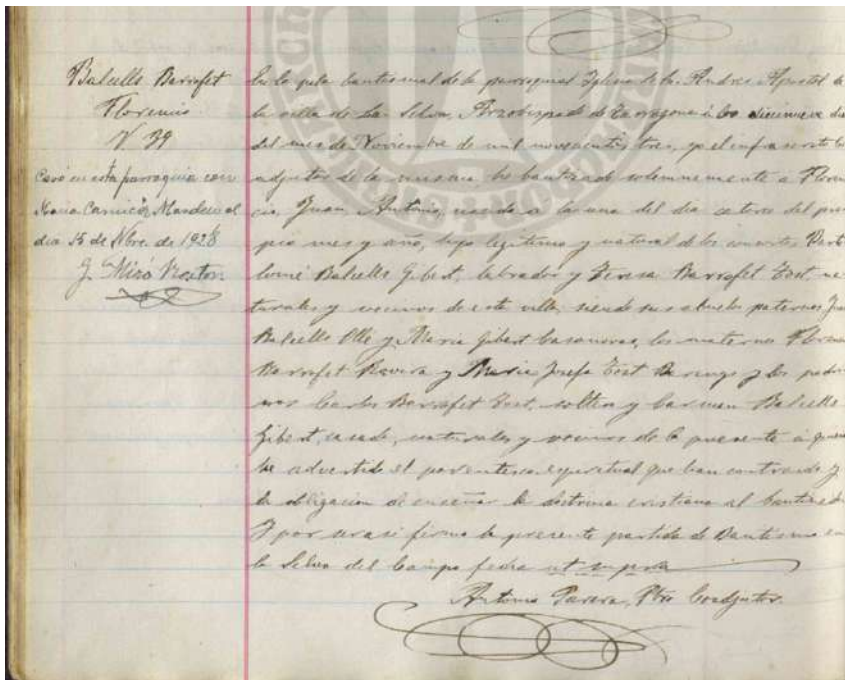 Balcells Barrafet
Florencio
N 39
Casó en esta parroquia con
Maria al
dia 15 de Nbre. de 1928
J. Miró Rector
En la pila bautismal de la parroquial Iglesia de San Andres Apostol de
la villa de La Selva, Arzobispado de Tarragona á los diecinueve dia
del mes de Noviembre de mil novecientos tres, yo el infrascrito
adjutor de la misma he bautizado solemnemente a Floren
cio, Juan, Antonio, nacido a la una del dia catorce del pro
pio mes y año, hijo legitimo y natural de los consortes Barto
lomé Balcells Gibert, labrador y Teresa Barrafet Tost, na
turales y vecinos de esta villa, siendo sus abuelos paternos Juan
Balcells Ollé y Maria Gibert Casanovas, los maternos Floren
Barrafet y Maria Josefa Tost y los padri
nos Carlos Barrafet Tost, soltero y Carmen Balcells
Gibert, casada, naturales y vecinos de la presente á quienes
he advertido el parentesco espiritual que han contraido y
la obligacion de enseñar la doctrina cristiana al bautizado
Y por ser asi firmo la presente partida de Bautismo en
la Selva del Campo fecha ut supra
Antonio Pbro Coadjutor.